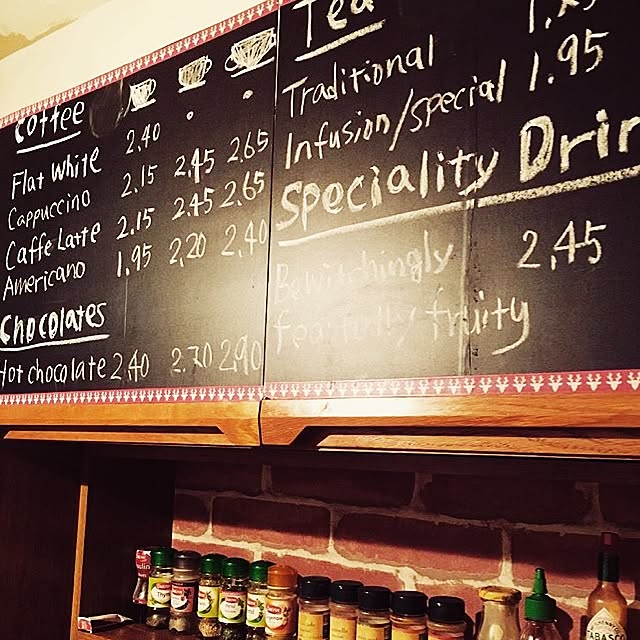 Coffee
Flat White 2.40
Cappuccino 2.15 2.45 2.65
Caffe Latte 2.15 2.45 2.65
Americano 1.95 2.20 2.40
Chocolates
Hot chocolate 2.40 2.70 2.90
Tea
Traditional
Infusion/special 1.95
Speciality Drin
Bewitchingly 2.45
fearfully fruity